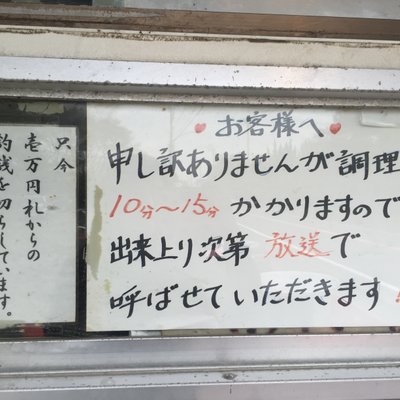 お客様へ
申し訳ありませんが調理
10分〜15分 かかりますので
出来上り次第 放送で
呼ばせていただきます
只今
壱万円札からの
釣銭を切らしています。